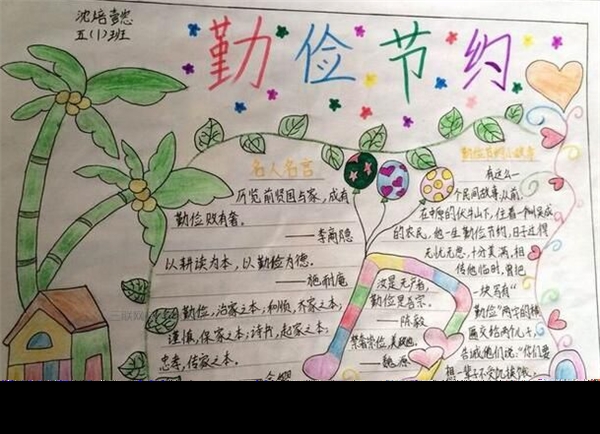 沈培
五(1)班
勤俭节约
名人名言
历览前贤国与家,成有
勤俭败有奢。
——李商隐
以耕读为本,以勤俭为德。
——施耐庵
勤俭,治家之本;和顺,齐家之本;
谨慎,保家之本;诗书,起家之本;
忠孝,传家之本。
——金缨
汝是无产者,
勤俭是吾宗。
——陈毅
——魏源
勤俭节约小故事
有这么一
个民间故事,从前,
在中原的伏牛山下,住着一个叫吴成
的农民,他一生勤俭节约,日子过得
无忧无愁,十分美满,相
传他临时,曾把
一块写有“
勤俭”两字的横
匾交给两个儿子,
告诫他们说:“你们要
想一辈子不受饥挨饿,